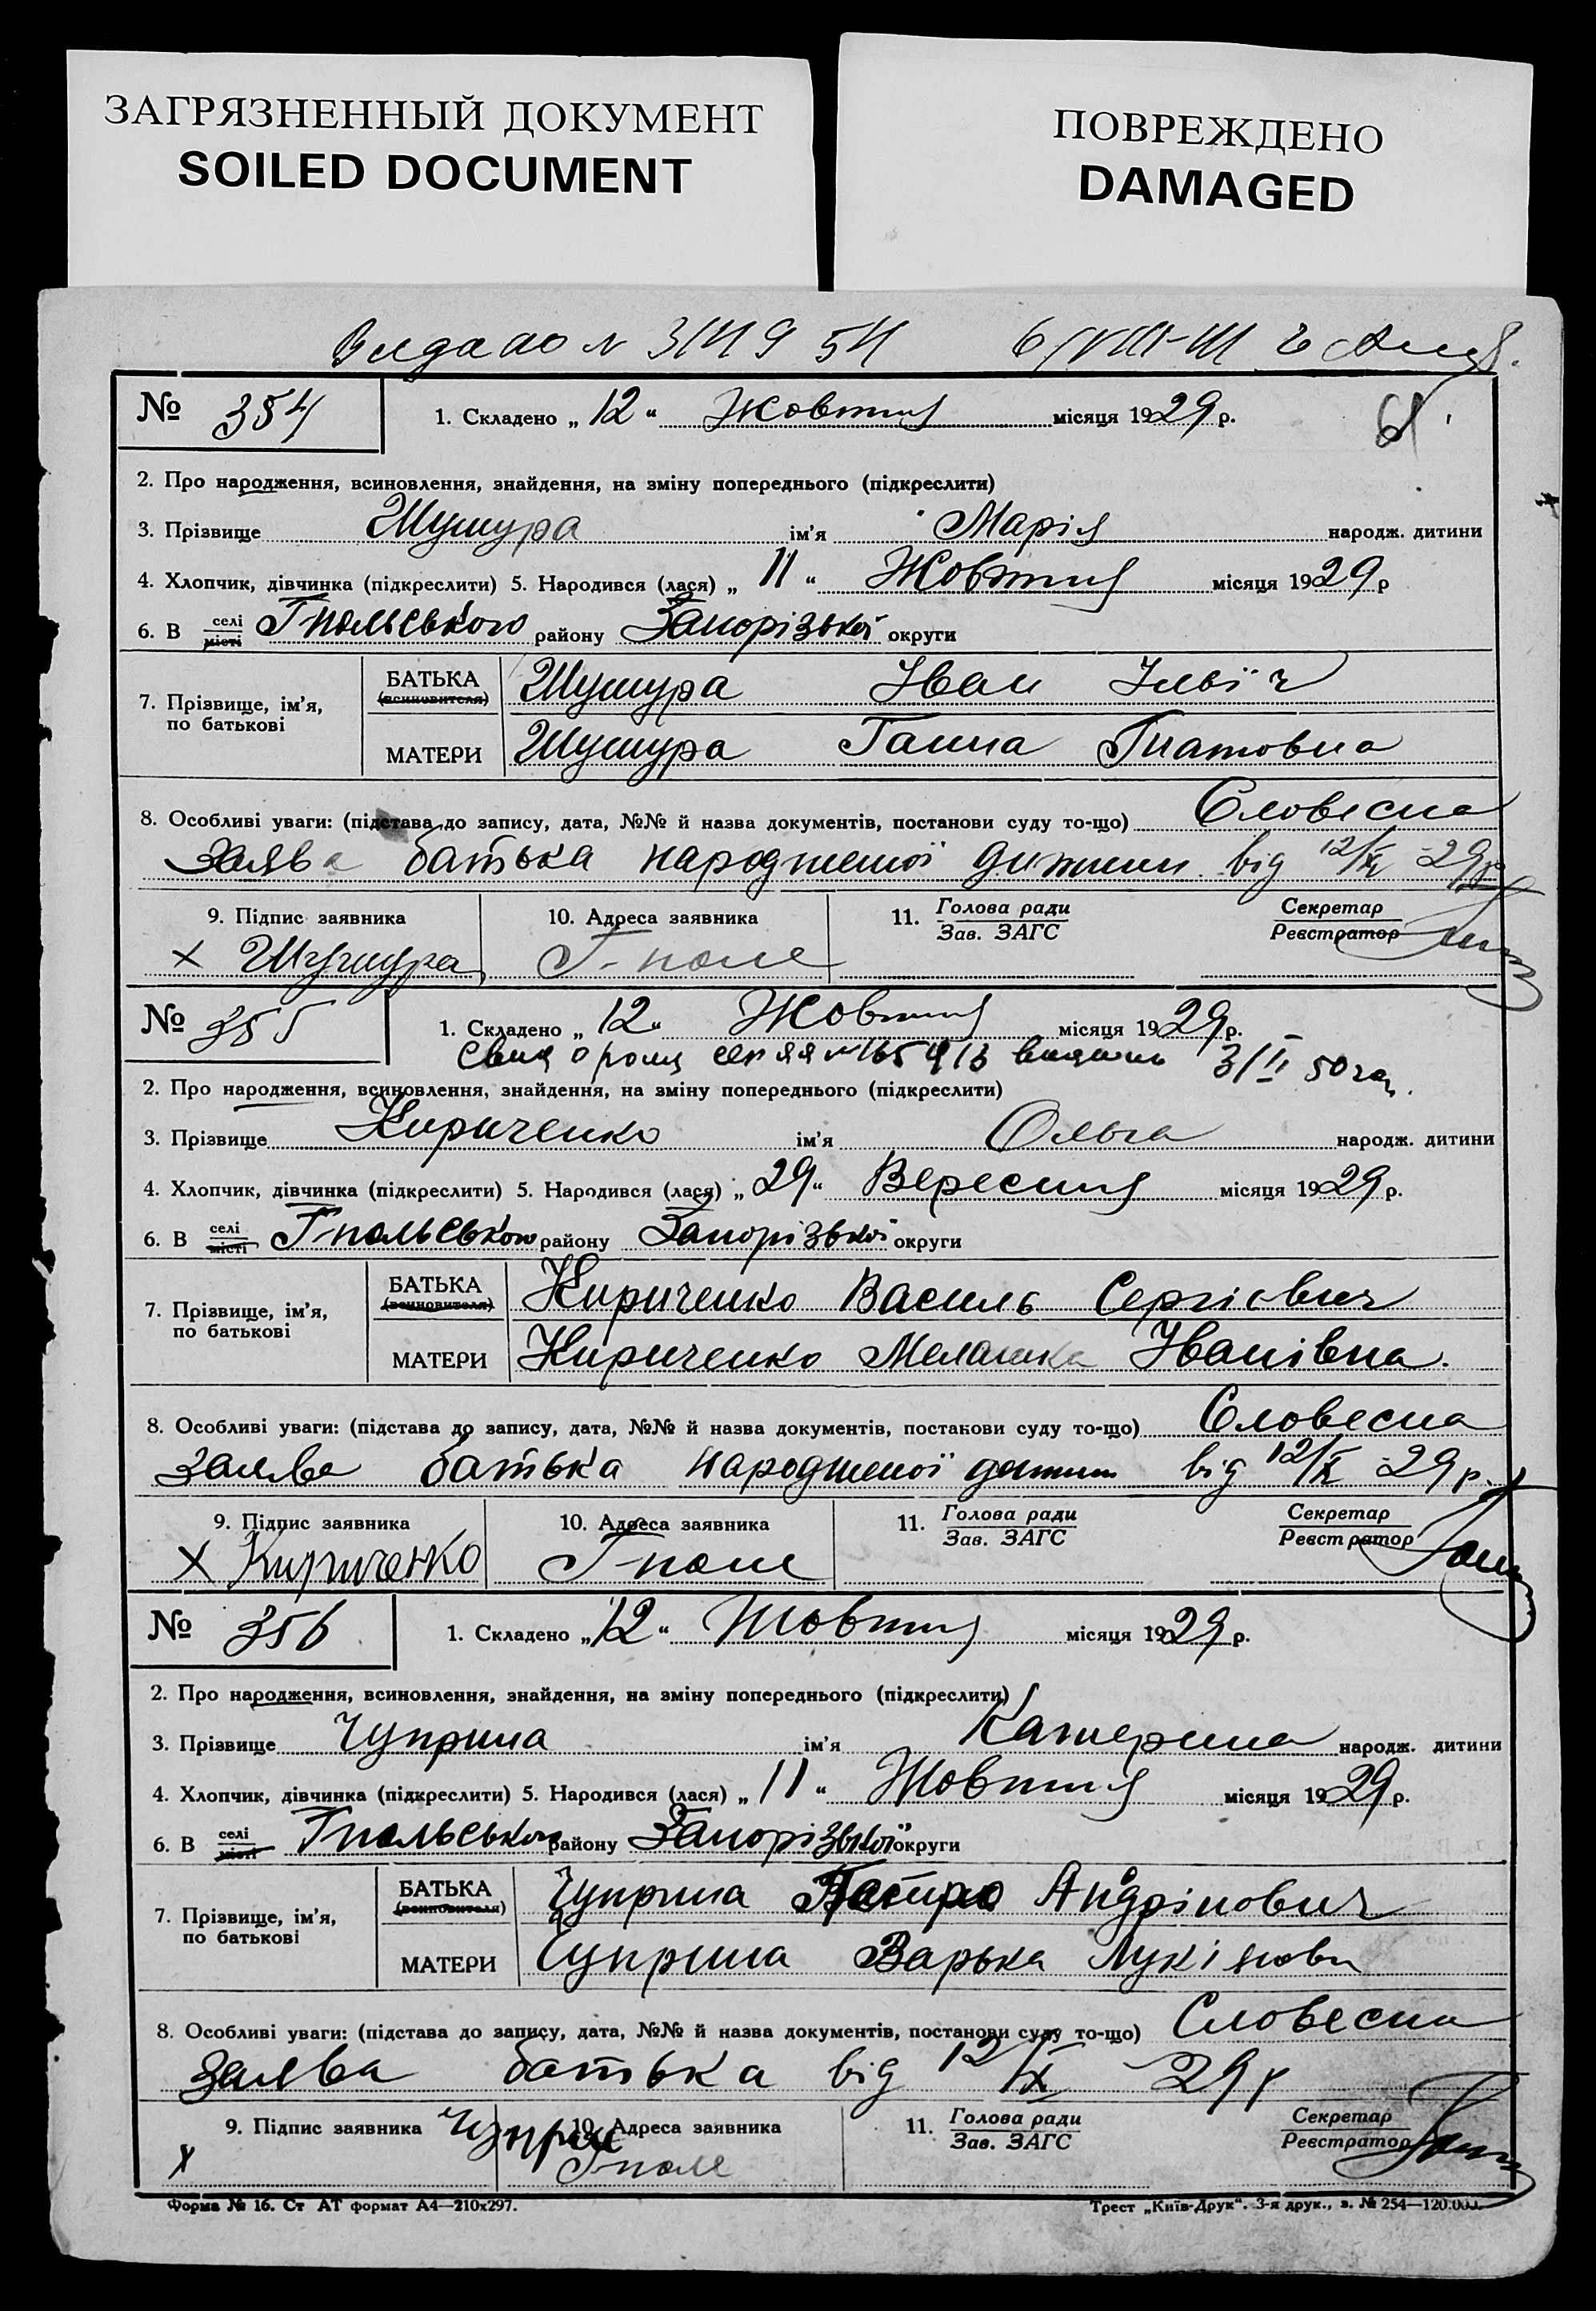 ЗАГРЯЗНЕННЫЙ ДОКУМЕНТ
SOILED DOCUMENT
ПОВРЕЖДЕНО
DAMAGED
№ 354
1. Складено „ 12 “ Жовтня місяця 1929 р.
61
2. Про народження, всиновлення, знайдення, на зміну попереднього (підкреслити)
3. Прізвище Шушура ім’я Марія народж. дитини
4. Хлопчик, дівчинка (підкреслити) 5. Народився (лася) „ 11 “ Жовтня місяця 1929 р
6. В селі місті Г-польського району Запорізької округи
7. Прізвище, ім’я, по батькові
БАТЬКА (всиновителя) Шушура Іван Ілвїч
МАТЕРИ Шушура Ганна Гнатовна
8. Особливі уваги: (підстава до запису, дата, №№ й назва документів, постанови суду то-що) Словесна
заява батька народженої дитини від 12/X 29р
9. Підпис заявника 10. Адреса заявника 11. Голова ради Зав. ЗАГС Секретар Реєстратор
х Шушура Г-поле
№ 355
1. Складено „ 12 “ Жовтня місяця 1929 р.
3/II 50
2. Про народження, всиновлення, знайдення, на зміну попереднього (підкреслити)
3. Прізвище Кириченко ім’я Ольга народж. дитини
4. Хлопчик, дівчинка (підкреслити) 5. Народився (лася) „ 29 “ Вересня місяця 1929 р.
6. В селі місті Г-польського району Запорізької округи
7. Прізвище, ім’я, по батькові
БАТЬКА (всиновителя) Кириченко Василь Сергієвич
МАТЕРИ Кириченко Мелашка Іванівна.
8. Особливі уваги: (підстава до запису, дата, №№ й назва документів, постанови суду то-що) Словесна
заява батька народженої дитини від 12/X 29 р.
9. Підпис заявника 10. Адреса заявника 11. Голова ради Зав. ЗАГС Секретар Реєстратор
х Кириченко Г-поле
№ 356
1. Складено „ 12 “ Жовтня місяця 1929 р.
2. Про народження, всиновлення, знайдення, на зміну попереднього (підкреслити)
3. Прізвище Чуприна ім’я Катерина народж. дитини
4. Хлопчик, дівчинка (підкреслити) 5. Народився (лася) „ 11 “ Жовтня місяця 1929 р.
6. В селі місті Г-польського району Запорізької округи
7. Прізвище, ім’я, по батькові
БАТЬКА (всиновителя) Чуприна Петро Андріпович
МАТЕРИ Чуприна Варька Лукіновн
8. Особливі уваги: (підстава до запису, дата, №№ й назва документів, постанови суду то-що) Словесна
заява батька від 12/X 29р
9. Підпис заявника 10. Адреса заявника 11. Голова ради Зав. ЗАГС Секретар Реєстратор
х Г-поле
Форма № 16. Ст АТ формат А4—210х297.
Трест „Київ-Друк“. 3-я друк., з. № 254—120.000.